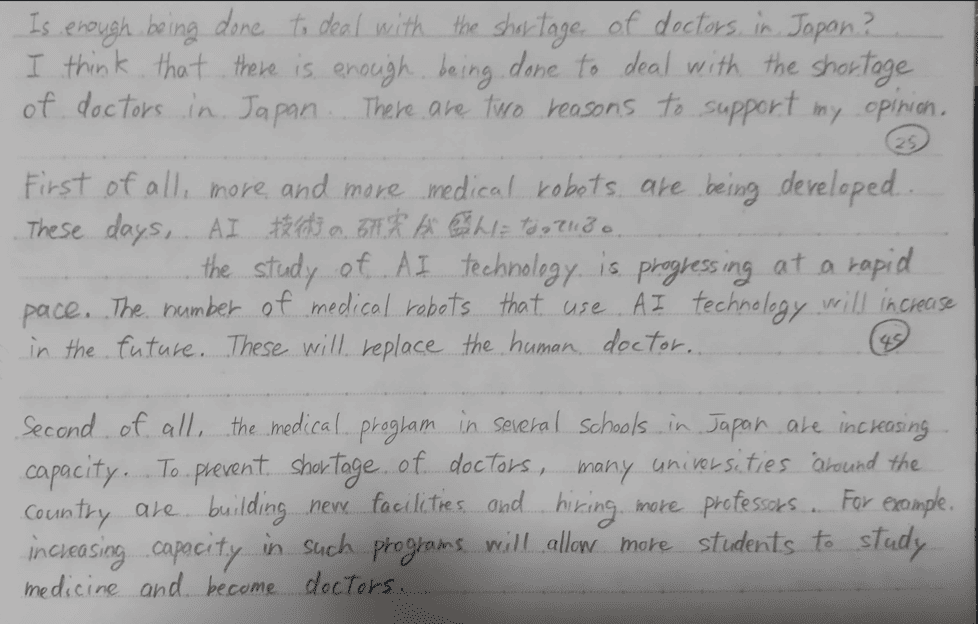 Is enough being done to deal with the shortage of doctors in Japan?
I think that there is enough being done to deal with the shortage
of doctors in Japan. There are two reasons to support my opinion.
25
First of all, more and more medical robots are being developed.
These days, AI 技術の研究が盛んになっている。
the study of AI technology is progressing at a rapid
pace. The number of medical robots that use AI technology will increase
in the future. These will replace the human doctor.
45
Second of all, the medical program in several schools in Japan are increasing
capacity. To prevent shortage of doctors, many universities around the
country are building new facilities and hiring more professors. For example,
increasing capacity in such programs will allow more students to study
medicine and become doctors.